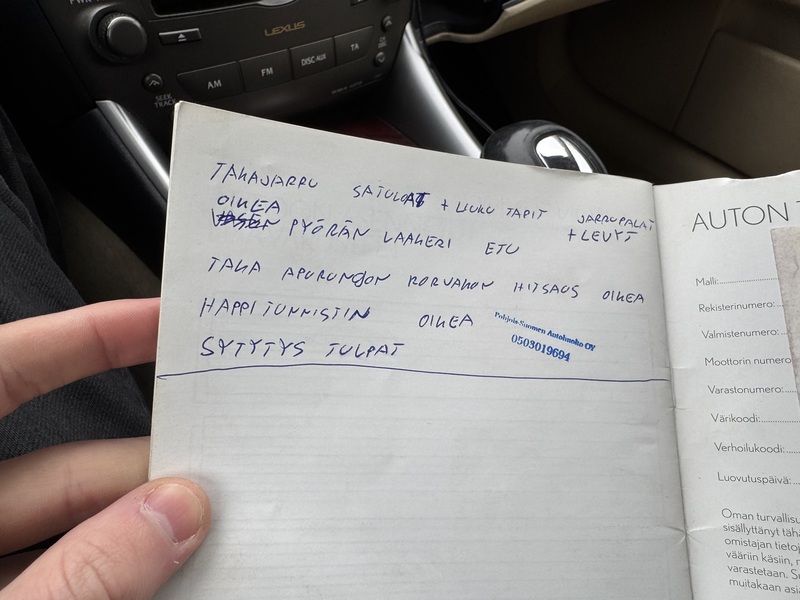 LEXUS
AM
FM
DISC·AUX
TA
SEEK
TRACK
TAKAJARRU SATULAT + LIUKU TAPIT JARRUPALAT
+ LEVYT
OIKEA
PYÖRÄN LAAKERI ETU
TAKA APURUNGON KORVAKON HITSAUS OIKEA
HAPPITUNNISTIN OIKEA
Pohjois-Suomen Autohuolto OY
0503019694
SYTYTYS TULPAT
AUTON
Malli:
Rekisterinumero:
Valmistenumero:
Moottorin numero
Varastonumero:
Värikoodi:
Verhoilukoodi:
Luovutuspäivä:
Oman turvallisu
sisällyttänyt täh
omistajan tietoj
vääriin käsiin,
varastetaan.
muitakaan asi